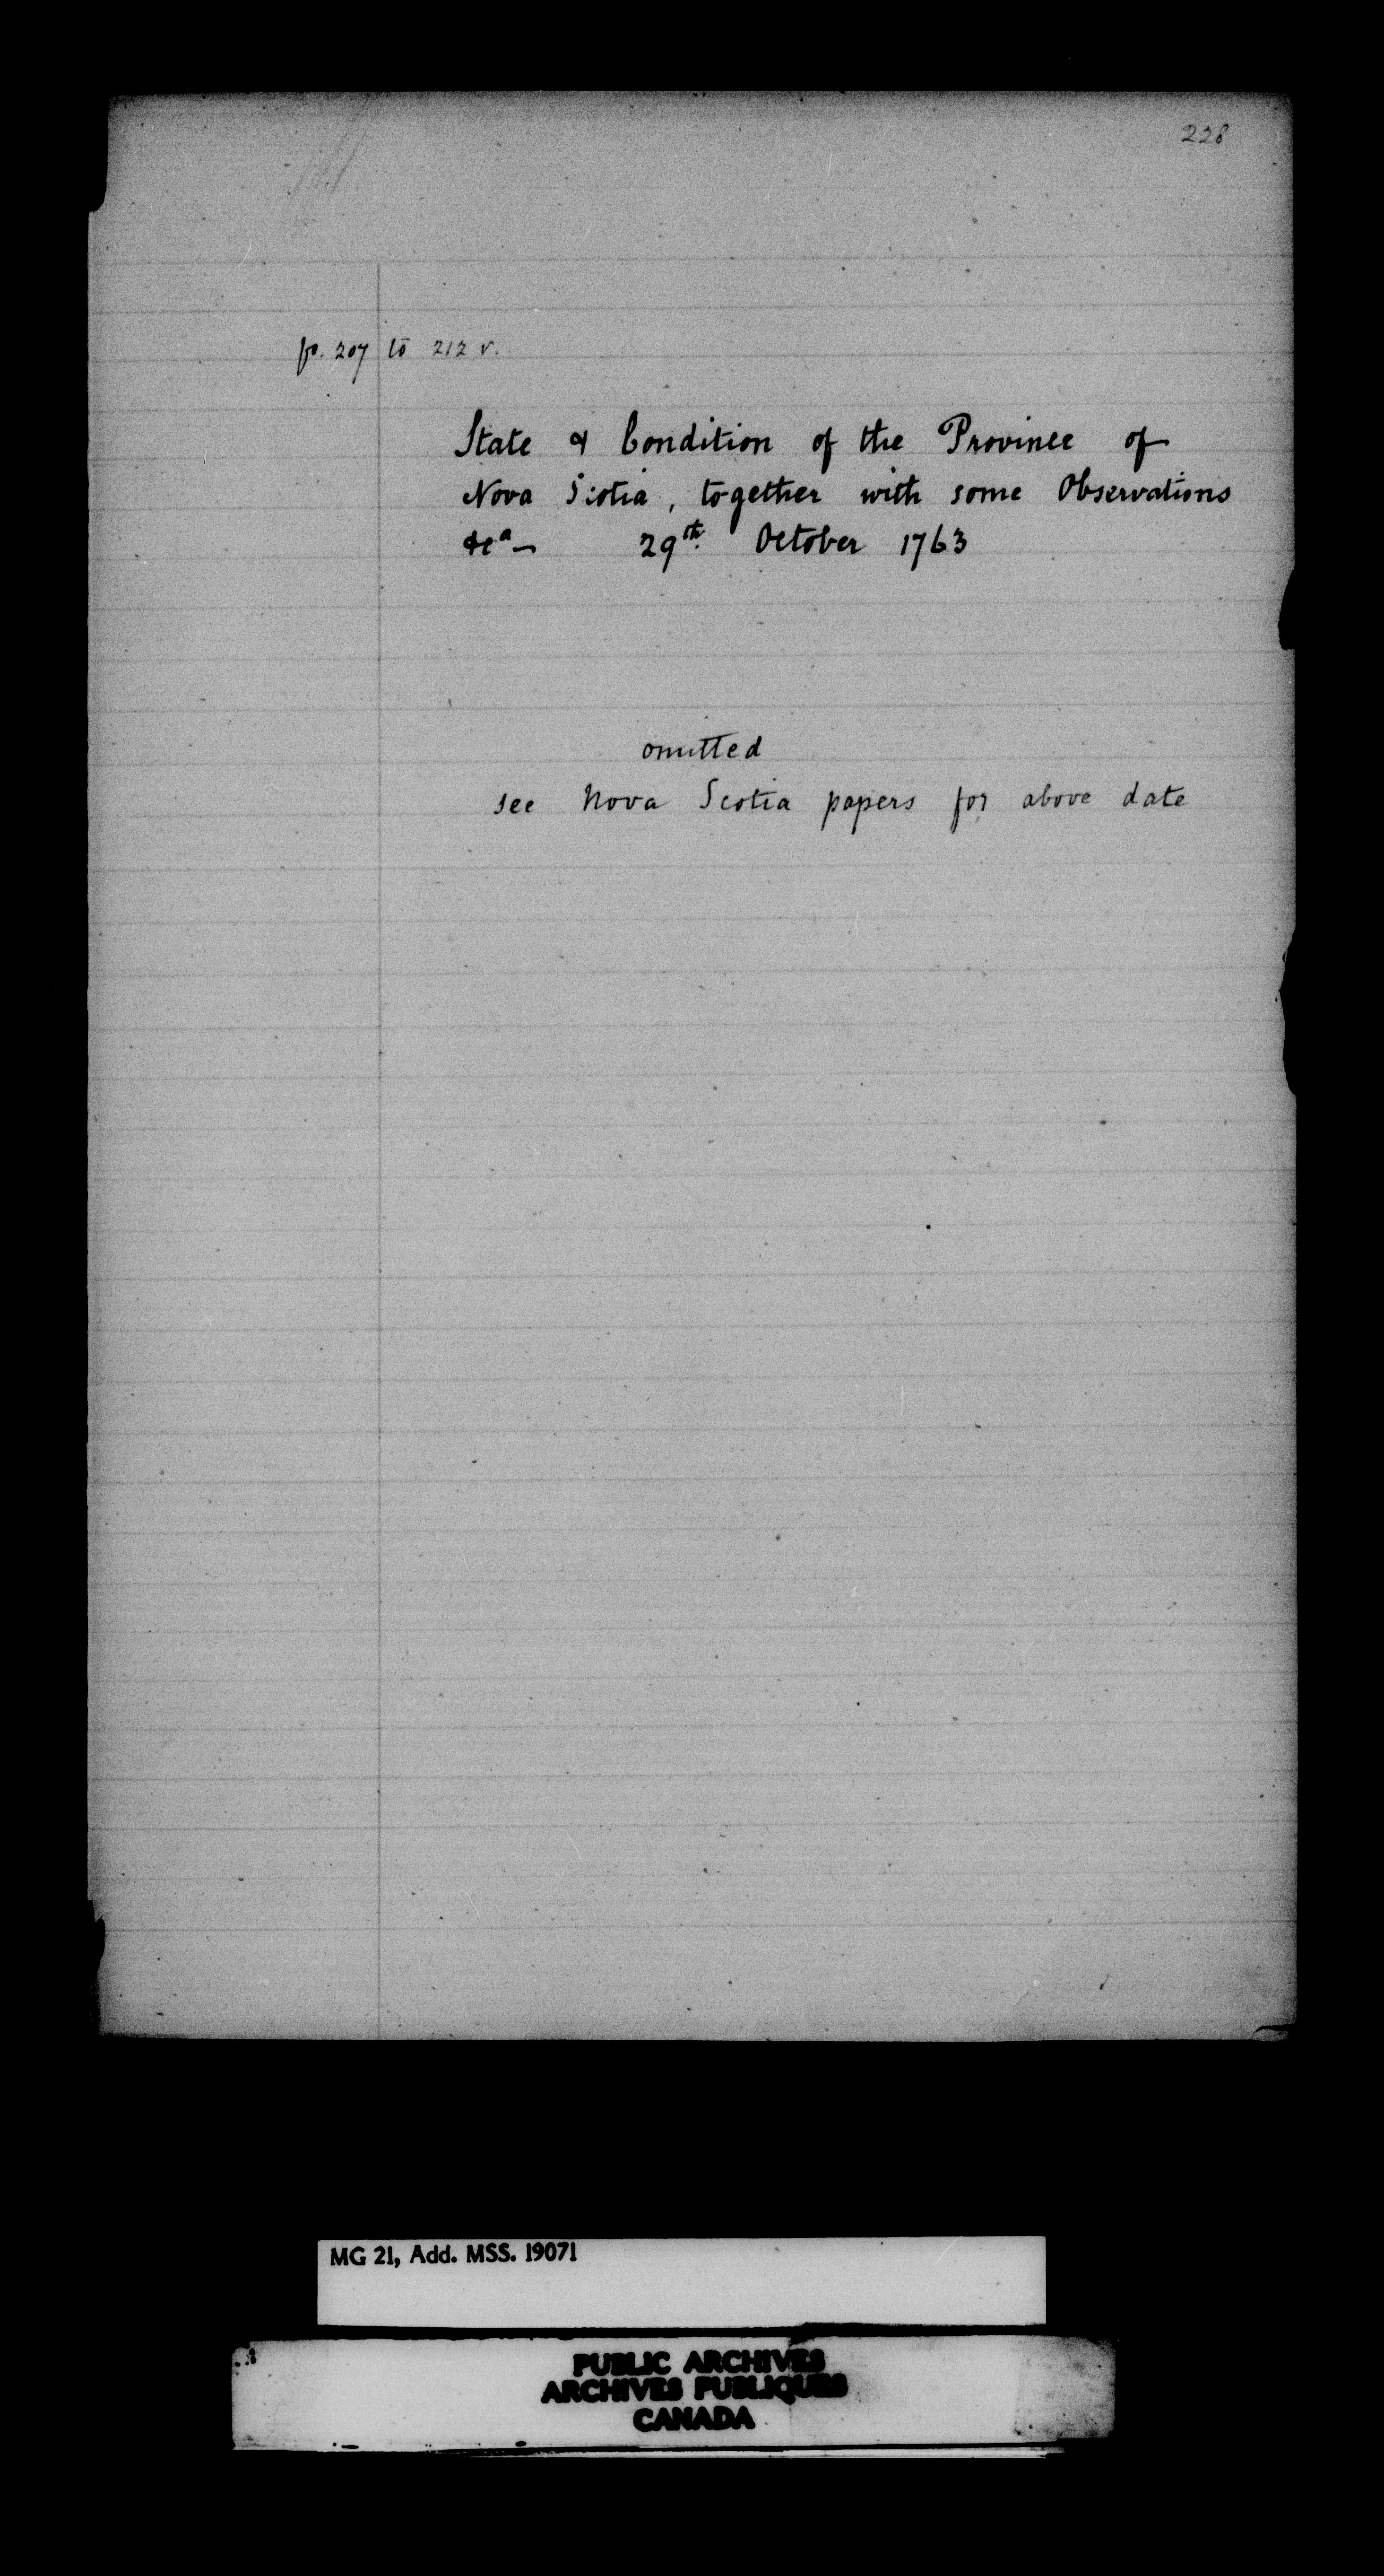 228
fo. 207 to 212 v.
State & Condition of the Province of
Nova Scotia, together with some Observations
&c a— 29th October 1763
omitted
see Nova Scotia papers for above date
MG 21, Add. MSS. 19071
PUBLIC ARCHIVES
ARCHIVES PUBLIQUES
CANADA